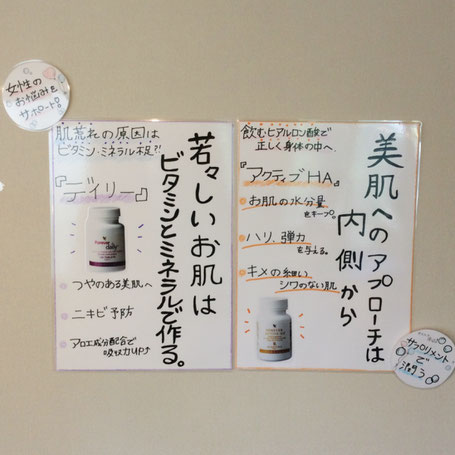 女性の
お悩みを
サポート!
肌荒れの原因は
ビタミン・ミネラル不足?!
『デイリー』
Forever
daily
つやのある美肌へ
ニキビ予防
アロエ成分配合で
吸収力UP↑
若々しいお肌は
ビタミンとミネラルで作る。
飲むヒアルロン酸で
正しく身体の中へ
『アクティブHA』
お肌の水分量
をキープ。
ハリ、弾力
を与える。
キメの細い
シワのない肌
美肌へのアプローチは
内側から
サプリメント
で